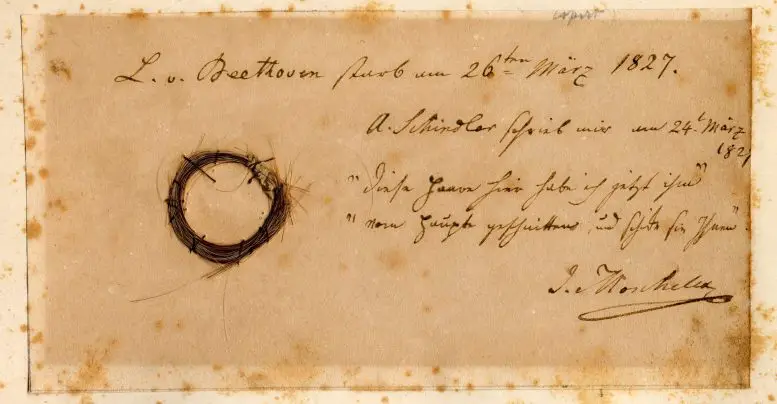 copirt
L. v. Beethoven starb am 26ten März 1827.
A. Schindler schrieb mir am 24t. März
1827
"diese Haare hier habe ich jetzt ihm"
"vom Haupte geschnitten, und schicke sie Ihnen".
I. Moscheles